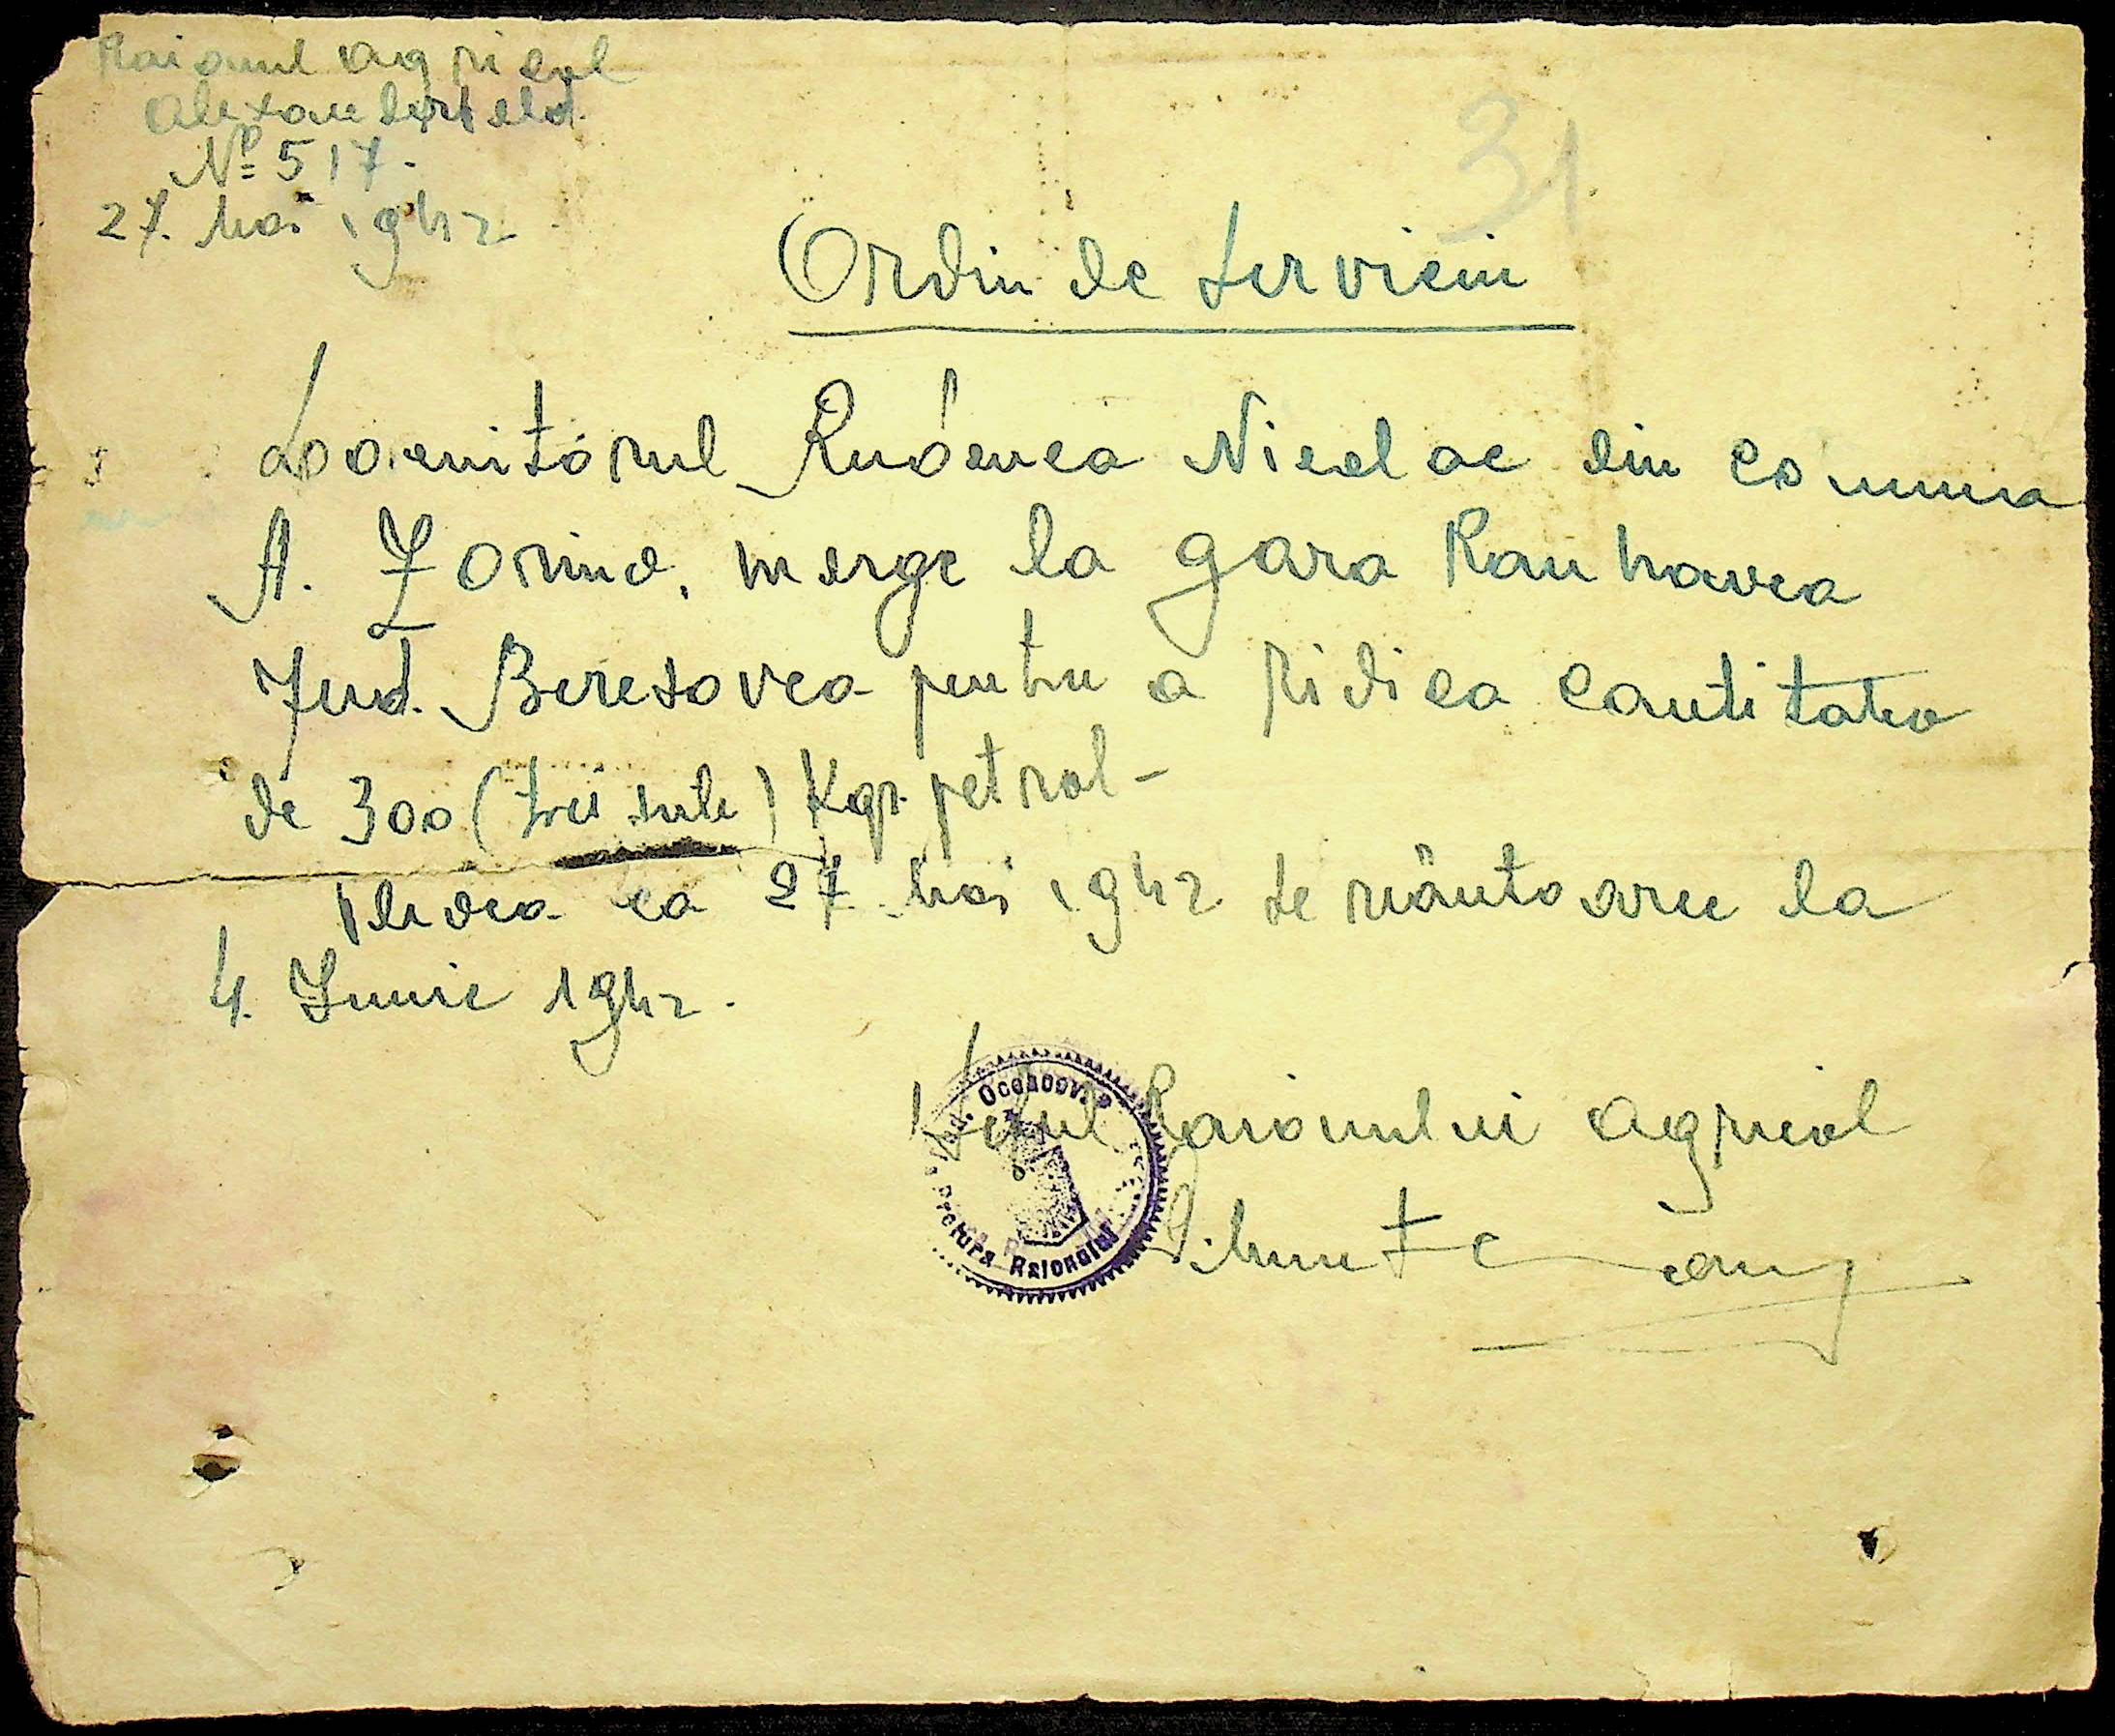 Raionul Agricol
Alexanderfeld.
№ 517.
27. Mai 1942
31
Ordin de serviciu
Locuitorul Rudenca Nicolae din comuna
A. Zorino, merge la gara Rauhavca
Jud. Beresovca pentru a ridica cantitatea
de 300 (trei sute) Kgr. petrol-
Pleaca ca 27 Mai 1942 se rëântoarce la
4. Iunie 1942.
Șeful Raionului Agricol
Jud. Oceacov
Pretura Raionului